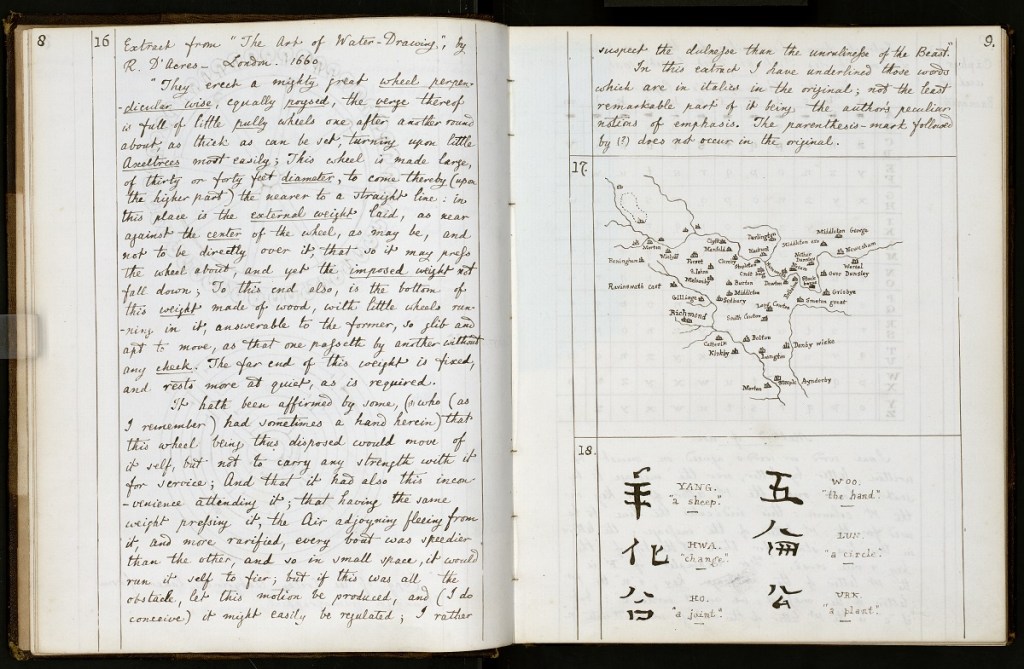 8
16
Extract from "The Art of Water-Drawing", by
R. D'Acres — London. 1660
"They erect a mighty great wheel perpen-
-dicular wise, equally poysed, the verge thereof
is full of little pully wheels one after another round
about, as thick as can be set, turning upon little
Axeltrees most easily; This wheel is made large,
of thirty or forty feet diameter, to come thereby (upon
the higher part) the nearer to a straight line: in
this place is the external weight laid, as near
against the center of the wheel, as may be, and
not to be directly over it; that so it may press
the wheel about, and yet the imposed weight not
fall down; To this end also, is the bottom of
this weight made of wood, with little wheels run-
-ning in it, answerable to the former, so glib and
apt to move, as that one passeth by another without
any check. The far end of this weight is fixed,
and rests more at quiet, as is required.
It hath been affirmed by some, (?) who (as
I remember) had sometimes a hand herein) that
this wheel being thus disposed would move of
it self, but not to carry any strength with it
for service; And that it had also this incon-
-venience attending it; that having the same
weight pressing it, the Air adjoyning fleeing from
it, and more rarified, every bout was speedier
than the other, and so in small space, it would
run it self to fier; but if this was all the
obstacle, let this motion be produced, and (I do
conceive) it might easily be regulated; I rather
9.
suspect the dulnesse than the unrulinesse of the Beast."
In this extract I have underlined those words
which are in italics in the original; not the least
remarkable part of it being the author's peculiar
notions of emphasis. The parenthesis-mark followed
by (?) does not occur in the original.
17.
Darlington
Middleton George
Middleton one
Newsham
Cliffe
Merton
Manfeld
Barningham
Forcet
Cleasby
Stapleton
Croft
Over Dinsdey
Ravinswath cast
Melsonby
Barton
Middleton
Girlsby
Gilling
Sedbury
Smeton great
Richmond
Smith Cowton
Catterick
Bolton
Danby wiske
Kirkby
Langton
Morton
Aynderby
18.
羊
YANG.
"a sheep".
五
WOO.
"the hand".
化
HWA.
"change".
倫
LUN.
"a circle".
合
HO.
"a joint".
公
"a plant".